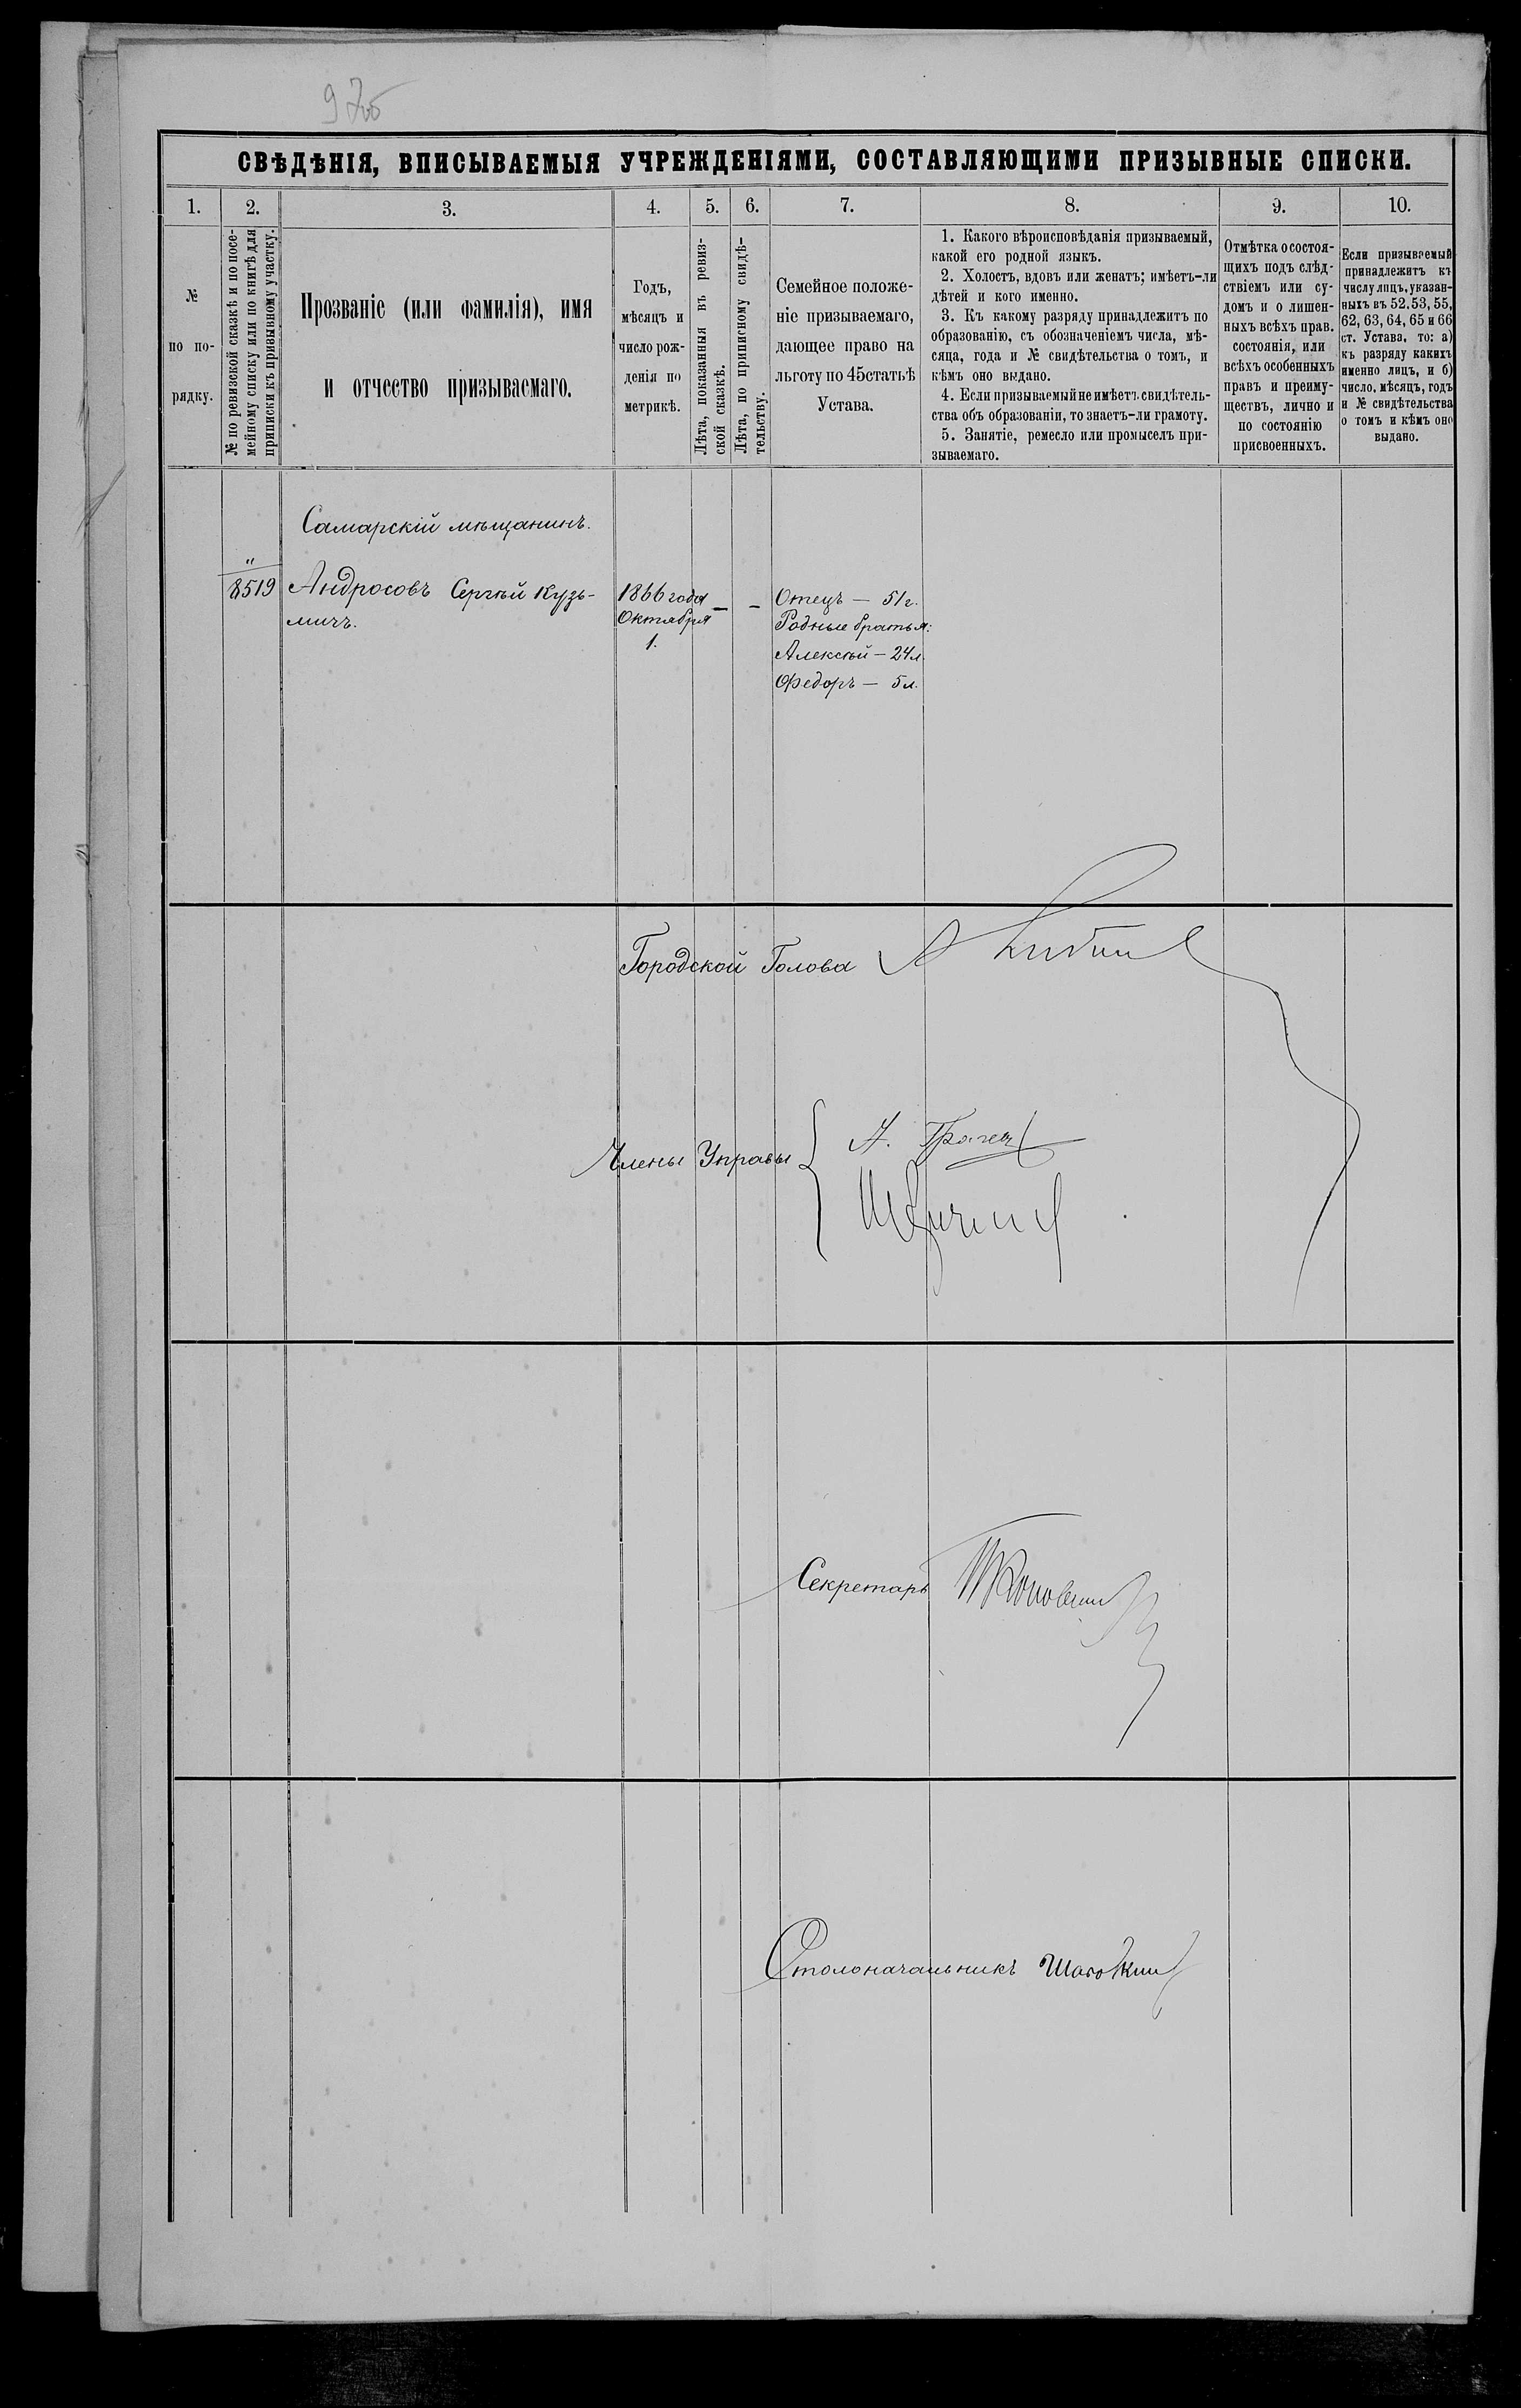 СВѢДѢНІЯ, ВПИСЫВАЕМЫЯ УЧРЕЖДЕНІЯМИ, СОСТАВЛЯЮЩИМИ ПРИЗЫВНЫЕ СПИСКИ.
1. 2. 3. 4. 5. 6. 7. 8. 9. 10.
№
по по-
рядку.
№ по ревизской сказкѣ и по посе-
мейному списку или по книгѣ для
приписки къ призывному участку.
Прозваніе (или фамилія), имя
и отчество призываемаго.
Годъ,
мѣсяцъ и
число рож-
денія по
метрикѣ.
Лѣта, показанныя въ ревиз-
ской сказкѣ.
Лѣта, по приписному свидѣ-
тельству.
Семейное положе-
ніе призываемаго,
дающее право на
льготу по 45 статьѣ
Устава.
1. Какого вѣроисповѣданія призываемый,
какой его родной языкъ.
2. Холостъ, вдовъ или женатъ; имѣетъ-ли
дѣтей и кого именно.
3. Къ какому разряду принадлежитъ по
образованію, съ обозначеніемъ числа, мѣ-
сяца, года и № свидѣтельства о томъ, и
кѣмъ оно выдано.
4. Если призываемый не имѣетъ свидѣтель-
ства объ образованіи, то знаетъ-ли грамоту.
5. Занятіе, ремесло или промыселъ при-
зываемаго.
Отмѣтка о состоя-
щихъ подъ слѣд-
ствіемъ или су-
домъ и о лишен-
ныхъ всѣхъ прав.
состоянія, или
всѣхъ особенныхъ
правъ и преиму-
ществъ, лично и
по состоянію
присвоенныхъ.
Если призываемый
принадлежитъ къ
числу лицъ, указан-
ныхъ въ 52. 53, 55,
62, 63, 64, 65 и 66
ст. Устава, то: а)
къ разряду какихъ
именно лицъ, и б)
число, мѣсяцъ, годъ
и № свидѣтельства
о томъ и кѣмъ оно
выдано.
Самарскій мѣщанинъ.
"
8519
Андросовъ Сергѣй Кузь-
мичъ.
1866 года
Октября
1.
—
—
Отецъ — 51 г.
Родные братья:
Алексѣй — 24 л.
Федоръ — 5 л.
Городской Голова
Члены Управы
Секретарь
Столоначальникъ